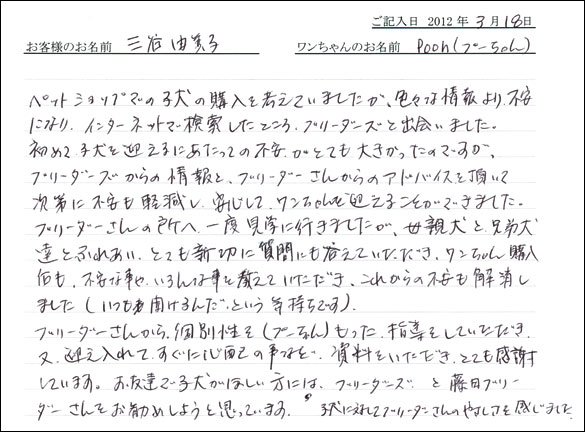 ご記入日 2012年 3月 18日
お客様のお名前 三谷由美子 ワンちゃんのお名前 Pooh(プーちゃん)
ペットショップでの子犬の購入を考えていましたが、色々な情報より不安
になり、インターネットで検索したところ、ブリーダーズと出会いました。
初めて子犬を迎えるにあたっての不安がとても大きかったのですが、
ブリーダーズからの情報と、ブリーダーさんからのアドバイスを頂いて
次第に不安も軽減し、安心して、ワンちゃんを迎えることができました。
ブリーダーさんの所へ一度見学に行きましたが、母親犬と兄弟犬
達とふれあい、とても親切に質問にも答えていただき、ワンちゃん購入
何も、不安な事や、いろんな事を教えていただき、これからの不安も解消し
ました(いつも聞けるんだ、という気持ちです)。
ブリーダーさんから、個別性を(プーちゃん)もった、指導をしていただき、
又、迎え入れて、すぐに の事など、資料をいただき、とても感謝
しています。お友達で子犬がほしい方には、ブリーダーズと藤田ブリー
ダーさんをお勧めしようと思っています。 子犬に対してブリーダーさんのやさしさを感じました